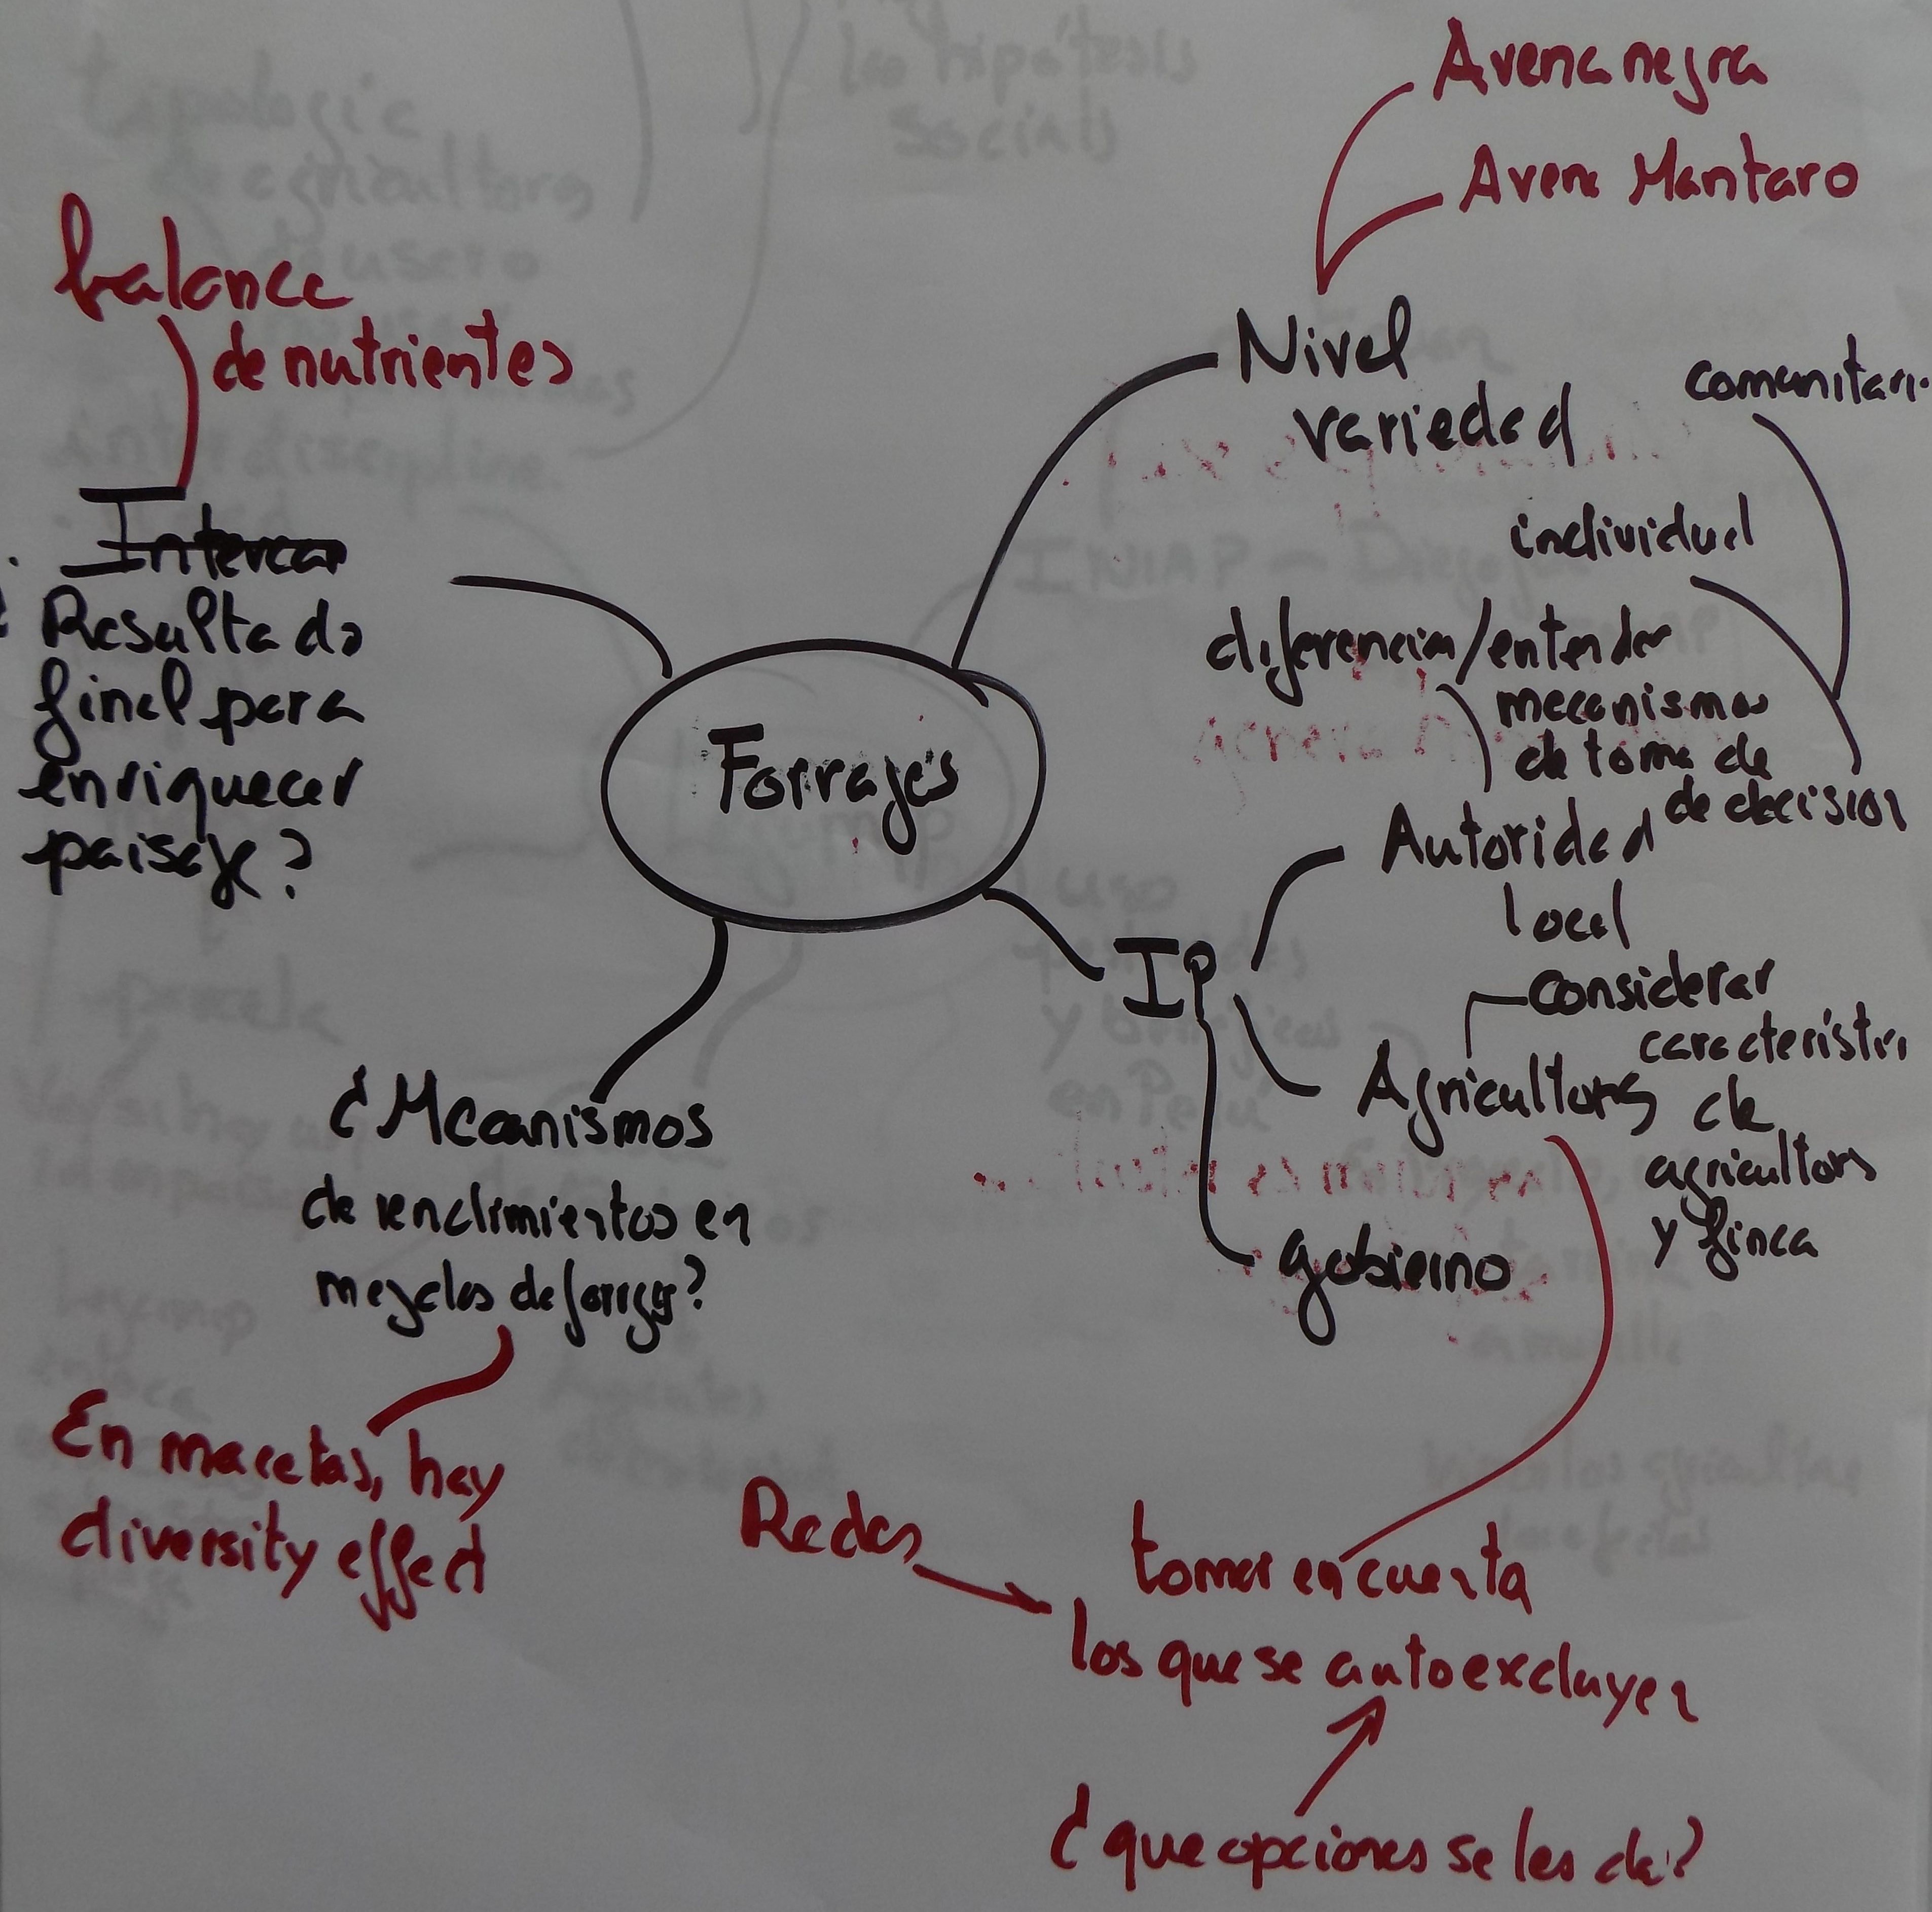 Avena negra
Avena Mantaro
balance
de nutrientes
Nivel
variedad
comunitari
individual
Intercar
Resultado
final para
enriquecer
paisaje?
Forrajes
diferencia/entender
mecanismos
de toma de
de decision
Autoridad
local
IP
considerar
caracteristi
Agricultores de
agricultors
y finca
gobierno
¿Mecanismos
de rendimientos en
mezclas de forrajes?
En macetas, hay
diversity effect
Redes
tomar en cuenta
los que se autoexcluyen
¿que opciones se les da?